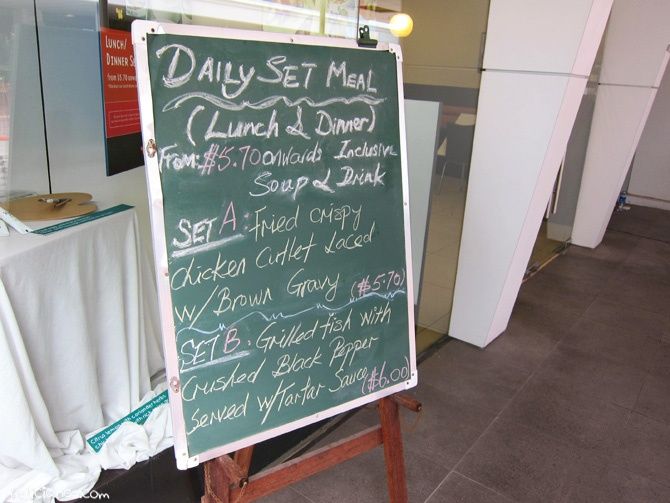 DAILY SET MEAL
(Lunch & Dinner)
From: $5.70 onwards Inclusive
Soup & Drink
SET A: Fried crispy
chicken Cutlet Laced
w/ Brown Gravy ($5.70)
SET B: Grilled fish with
crushed Black Pepper
served w/Tartar Sauce ($6.00)
LUNCH/
DINNER
from $5.70 onwards